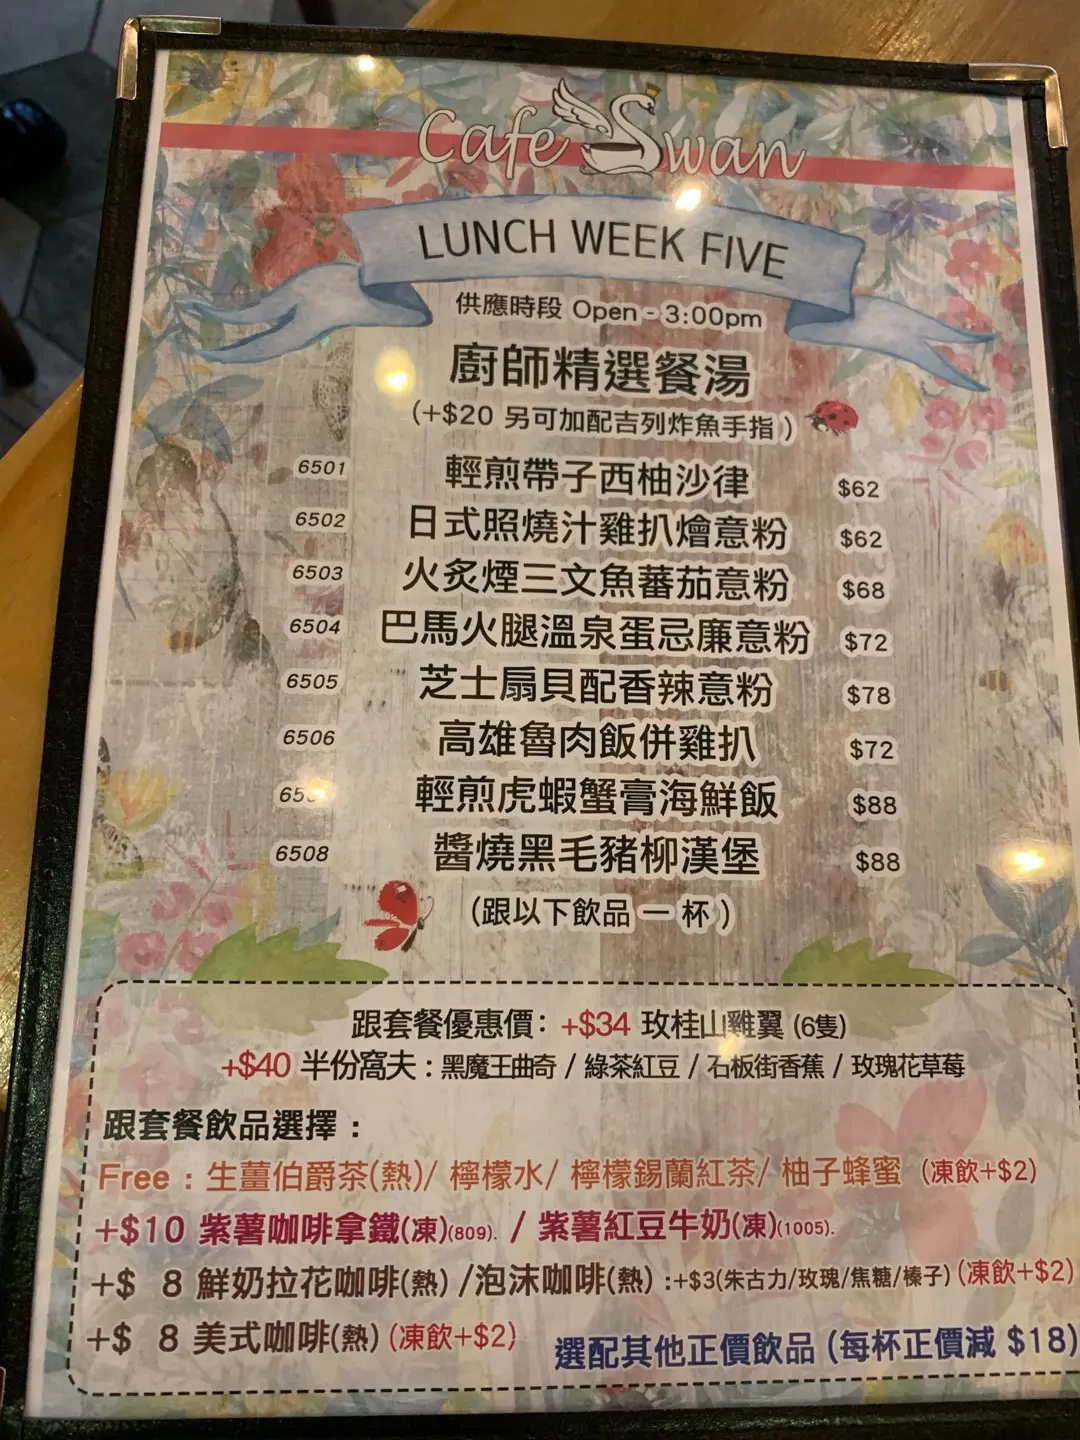 Cafe Swan
LUNCH WEEK FIVE
供應時段 Open - 3:00pm
廚師精選餐湯
(+$20 另可加配吉列炸魚手指)
6501 輕煎帶子西柚沙律 $62
6502 日式照燒汁雞扒燴意粉 $62
6503 火炙煙三文魚蕃茄意粉 $68
6504 巴馬火腿溫泉蛋忌廉意粉 $72
6505 芝士扇貝配香辣意粉 $78
6506 高雄魯肉飯併雞扒 $72
輕煎虎蝦蟹膏海鮮飯 $88
6508 醬燒黑毛豬柳漢堡 $88
(跟以下飲品 一 杯)
跟套餐優惠價: +$34 玫桂山雞翼 (6隻)
+$40 半份窩夫 : 黑魔王曲奇 / 綠茶紅豆 / 石板街香蕉 / 玫瑰花草莓
跟套餐飲品選擇 :
Free : 生薑伯爵茶(熱)/ 檸檬水/ 檸檬錫蘭紅茶/ 柚子蜂蜜 (凍飲+$2)
+$10 紫薯咖啡拿鐵(凍)(809). / 紫薯紅豆牛奶(凍)(1005).
+$ 8 鮮奶拉花咖啡(熱) /泡沫咖啡(熱) :+$3(朱古力/玫瑰/焦糖/榛子) (凍飲+$2)
+$ 8 美式咖啡(熱) (凍飲+$2) 選配其他正價飲品 (每杯正價減 $18)